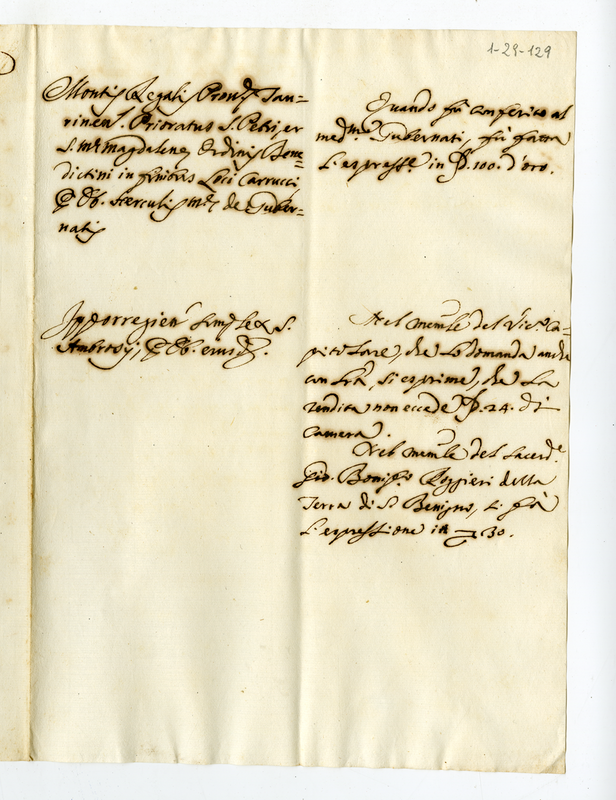 1-29-129
Montis Regalis Provis Tau=
rinen. Prioratus S. Petri, et
S. Mæ Magdalenę Ordinis Bene=
dictini in finibus Loci Carrucci
P Ob. Herculis de Guber=
natis
Quando fù conferito al
med.mo Gubernati, fù fatta
l'espress.e in 100. d'oro.
Ipporegien S.
Ambrosij, P Ob. eiusd.
Nel mem.le del Vic.o Ca=
pitolare, che lo domanda anche
con si esprime, che la
rendita non eccede 24. di
Camera.
Nel mem.le del Sacerd.e
Gio. Bonif.o Roggieri della
Terra di S. Benigno, si fà
l'espressione in 30.